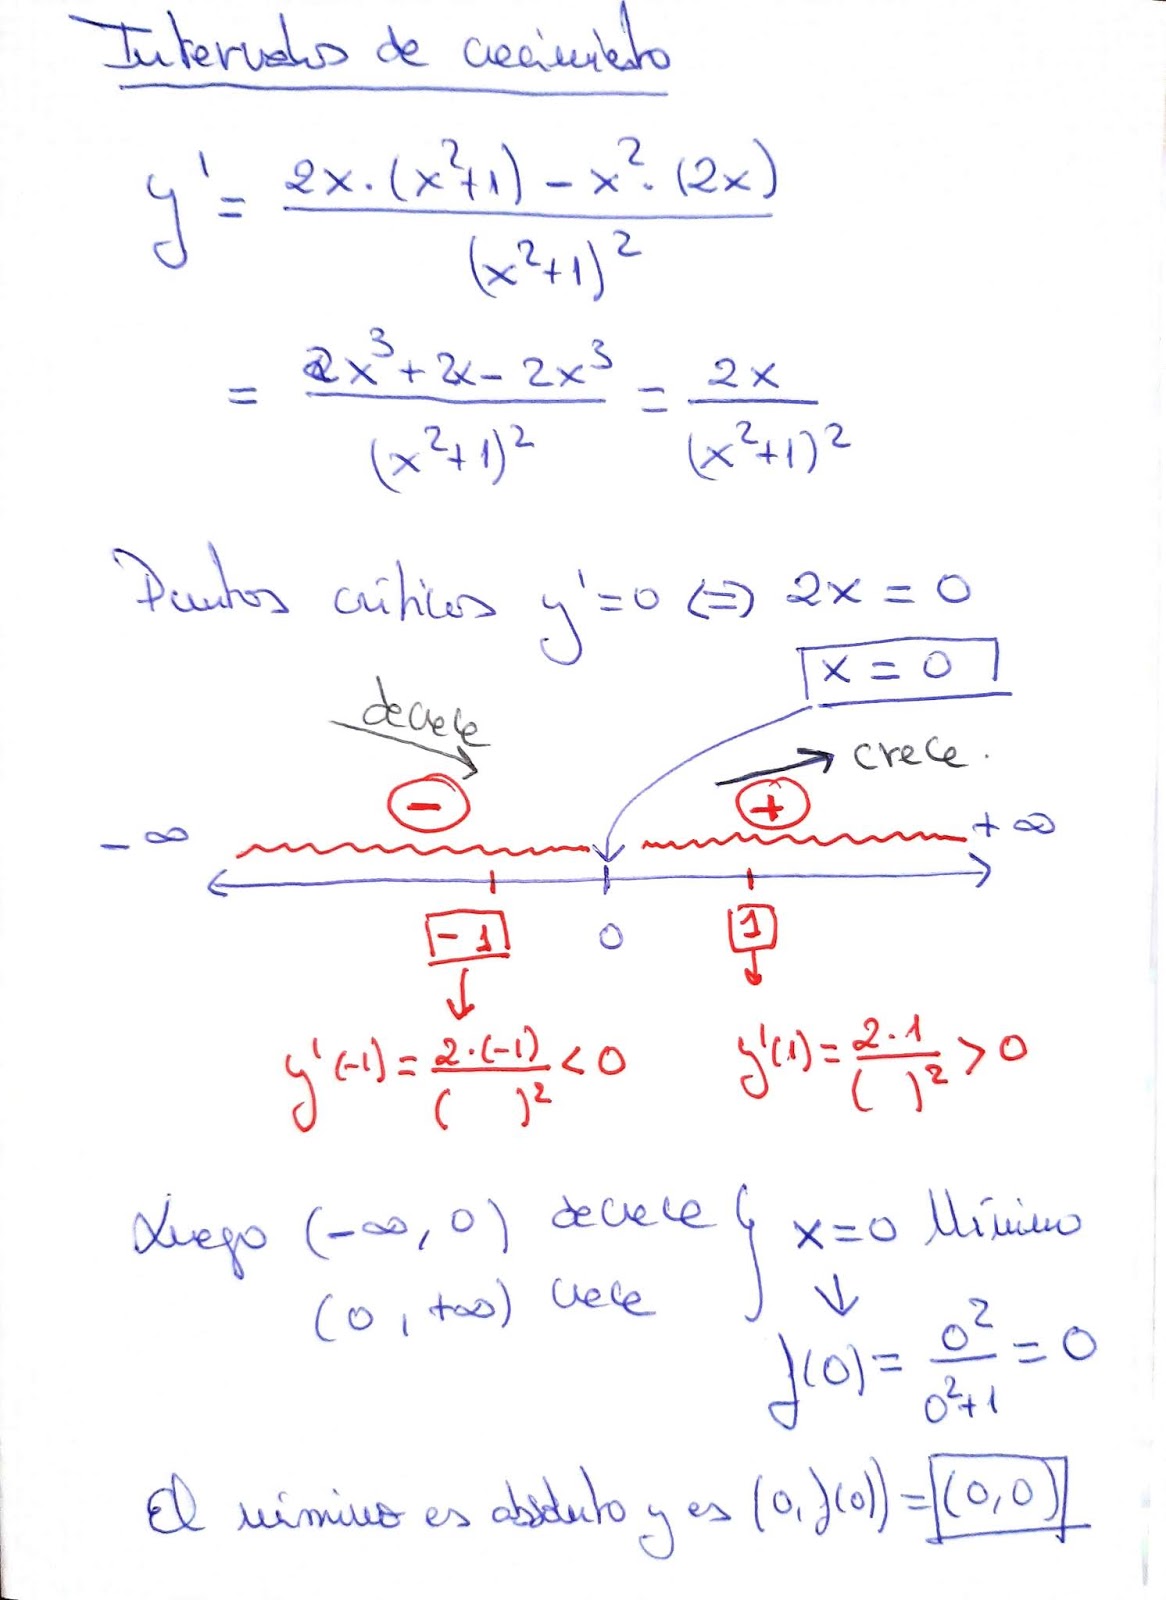 Intervalos de crecimiento
y' = (2x·(x²+1) - x²·(2x)) / (x²+1)²
= (2x³+2x-2x³) / (x²+1)² = 2x / (x²+1)²
Puntos críticos y'=0 ⇔ 2x = 0
x = 0
decrece
crece.
- +
-∞ +∞
-1 0 1
y'(-1) = 2·(-1) / ( )² < 0 y'(1) = 2·1 / ( )² > 0
Luego (-∞, 0) decrece } x=0 Mínimo
(0, +∞) crece ↓
f(0) = 0² / 0²+1 = 0
El mínimo es absoluto y es (0, f(0)) = (0,0)